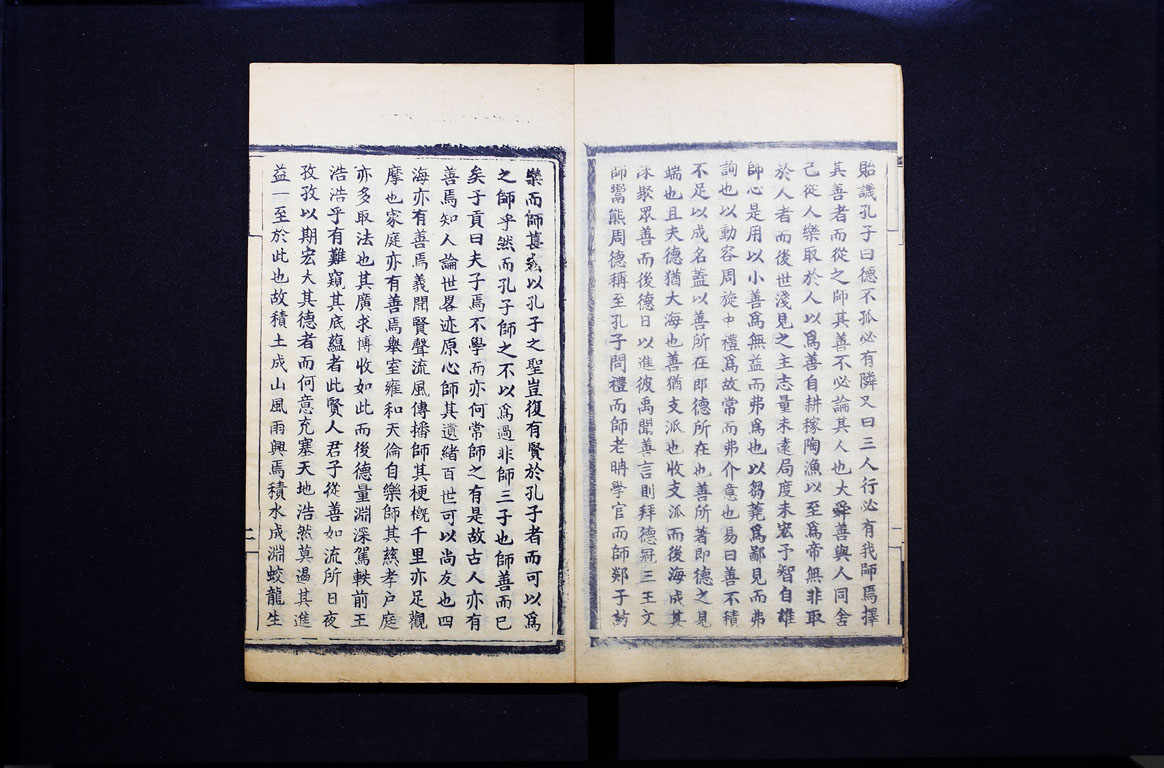 貽譏孔子曰德不孤必有隣又曰三人行必有我師焉擇
其善者而從之師其善不必論其人也大舜善與人同舍
己從人樂取於人以爲善自耕稼陶漁以至爲帝無非取
於人者而後世淺見之主志量未遠局度未宏予智自雄
師心是用以小善爲無益而弗爲也以芻蕘爲鄙見而弗
詢也以動容周旋中禮爲故常而弗介意也易曰善不積
不足以成名蓋以善所在即德所在也善所著即德之見
端也且夫德猶大海也善猶支派也收支派而後海成其
深聚眾善而後德日以進彼禹聞善言則拜德冠三王文
師鬻熊周德稱至孔子問禮而師老聃學官而師郯子訪
樂而師萇宏以孔子之聖豈復有賢於孔子者而可以爲
之師乎然而孔子師之不以爲過非師三子也師善而已
矣子貢曰夫子焉不學而亦何常師之有是故古人亦有
善焉知人論世畧迹原心師其遺緒百世可以尚友也四
海亦有善焉義聞賢聲流風傳播師其梗概千里亦足觀
摩也家庭亦有善焉舉室雍和天倫自樂師其慈孝户庭
亦多取法也其廣求博收如此而後德量淵深駕軼前王
浩浩乎有難窺其底蘊者此賢人君子從善如流所日夜
孜孜以期宏大其德者而何意充塞天地浩然莫遏其進
益一至於此也故積土成山風雨興焉積水成淵蛟龍生
二